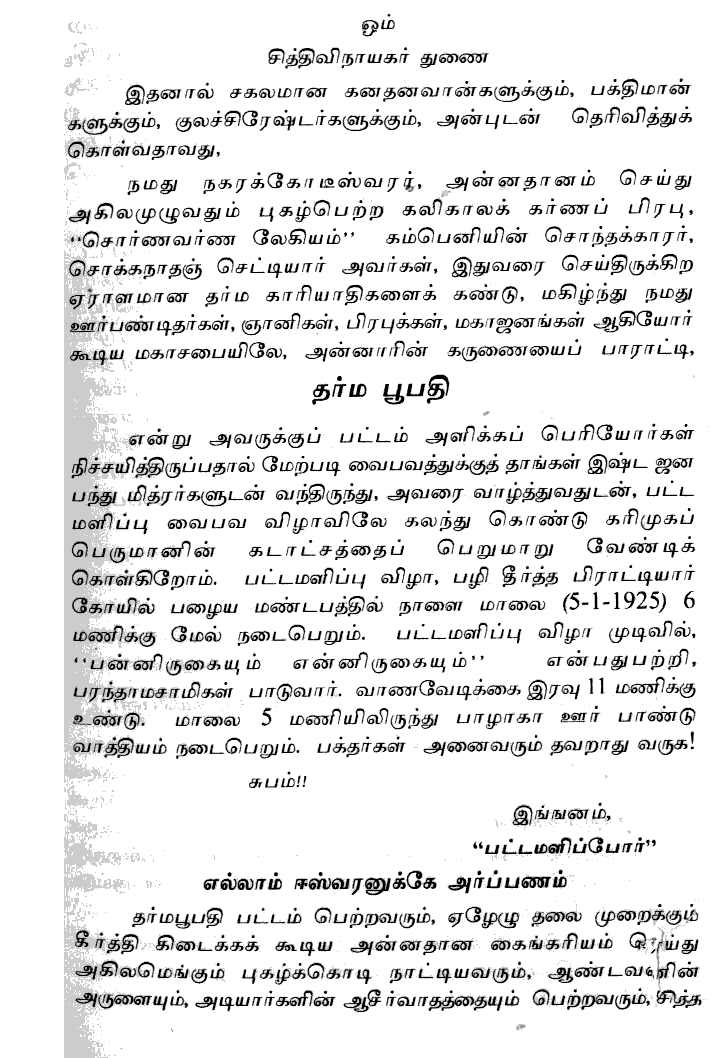 ஓம்
சித்திவிநாயகர் துணை
இதனால் சகலமான கனதனவான்களுக்கும், பக்திமான்
களுக்கும், குலச்சிரேஷ்டர்களுக்கும், அன்புடன் தெரிவித்துக்
கொள்வதாவது,
நமது நகரக்கோடீஸ்வரர், அன்னதானம் செய்து
அகிலமுழுவதும் புகழ்பெற்ற கலிகாலக் கர்ணப் பிரபு,
“சொர்ணவர்ண லேகியம்” கம்பெனியின் சொந்தக்காரர்,
சொக்கநாதஞ் செட்டியார் அவர்கள், இதுவரை செய்திருக்கிற
ஏராளமான தர்ம காரியாதிகளைக் கண்டு, மகிழ்ந்து நமது
ஊர்பண்டிதர்கள், ஞானிகள், பிரபுக்கள், மகாஜனங்கள் ஆகியோர்
கூடிய மகாசபையிலே, அன்னாரின் கருணையைப் பாராட்டி,
தர்ம பூபதி
என்று அவருக்குப் பட்டம் அளிக்கப் பெரியோர்கள்
நிச்சயித்திருப்பதால் மேற்படி வைபவத்துக்குத் தாங்கள் இஷ்ட ஜன
பந்து மித்ரர்களுடன் வந்திருந்து, அவரை வாழ்த்துவதுடன், பட்ட
மளிப்பு வைபவ விழாவிலே கலந்து கொண்டு கரிமுகப்
பெருமானின் கடாட்சத்தைப் பெறுமாறு வேண்டிக்
கொள்கிறோம். பட்டமளிப்பு விழா, பழி தீர்த்த பிராட்டியார்
கோயில் பழைய மண்டபத்தில் நாளை மாலை (5-1-1925) 6
மணிக்கு மேல் நடைபெறும். பட்டமளிப்பு விழா முடிவில்,
“பன்னிருகையும் என்னிருகையும்” என்பதுபற்றி,
பரந்தாமசாமிகள் பாடுவார். வாணவேடிக்கை இரவு 11 மணிக்கு
உண்டு. மாலை 5 மணியிலிருந்து பாழாகா ஊர் பாண்டு
வாத்தியம் நடைபெறும். பக்தர்கள் அனைவரும் தவறாது வருக!
சுபம்!!
இங்ஙனம்,
“பட்டமளிப்போர்”
எல்லாம் ஈஸ்வரனுக்கே அர்ப்பணம்
தர்மபூபதி பட்டம் பெற்றவரும், ஏழேழு தலை முறைக்கும்
கீர்த்தி கிடைக்கக் கூடிய அன்னதான கைங்கரியம் செய்து
அகிலமெங்கும் புகழ்க்கொடி நாட்டியவரும், ஆண்டவனின்
அருளையும், அடியார்களின் ஆசீர்வாதத்தையும் பெற்றவரும், சித்த